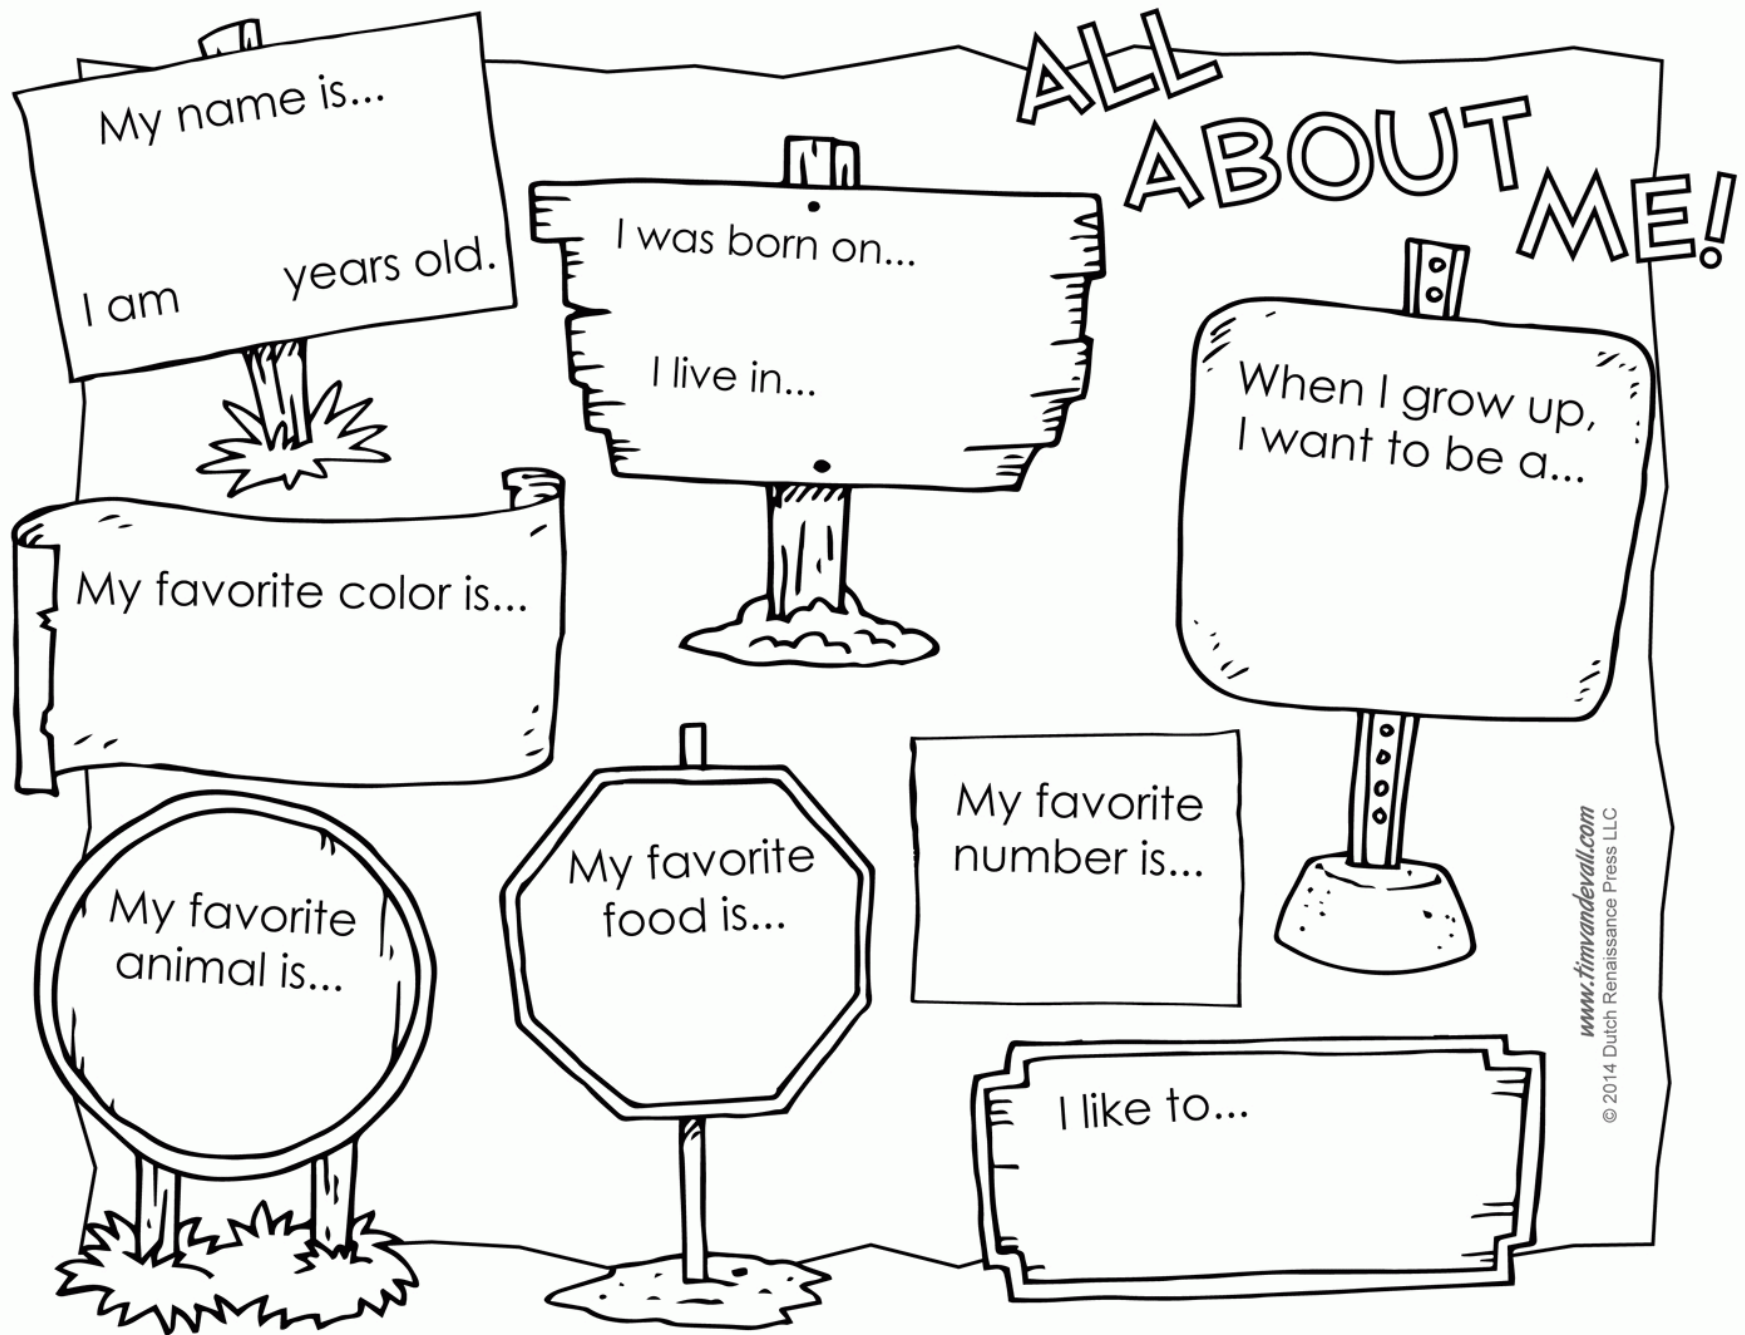 ALL
ABOUT
ME!
My name is...
I am years old.
I was born on...
I live in...
When I grow up,
I want to be a...
My favorite color is...
My favorite
animal is...
My favorite
food is...
My favorite
number is...
I like to...
www.timvandevall.com
© 2014 Dutch Renaissance Press LLC